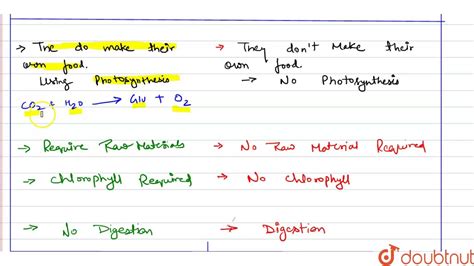 → The do make their
own food.
Using Photosynthesis
CO2 + H2O → Glu + O2
→ Require Raw Materials
→ Chlorophyll Required
→ No Digestion
→ They don't Make their
own food.
→ No Photosynthesis
→ No Raw Material Required
→ No Chlorophyll
→ Digestion
doubtnut